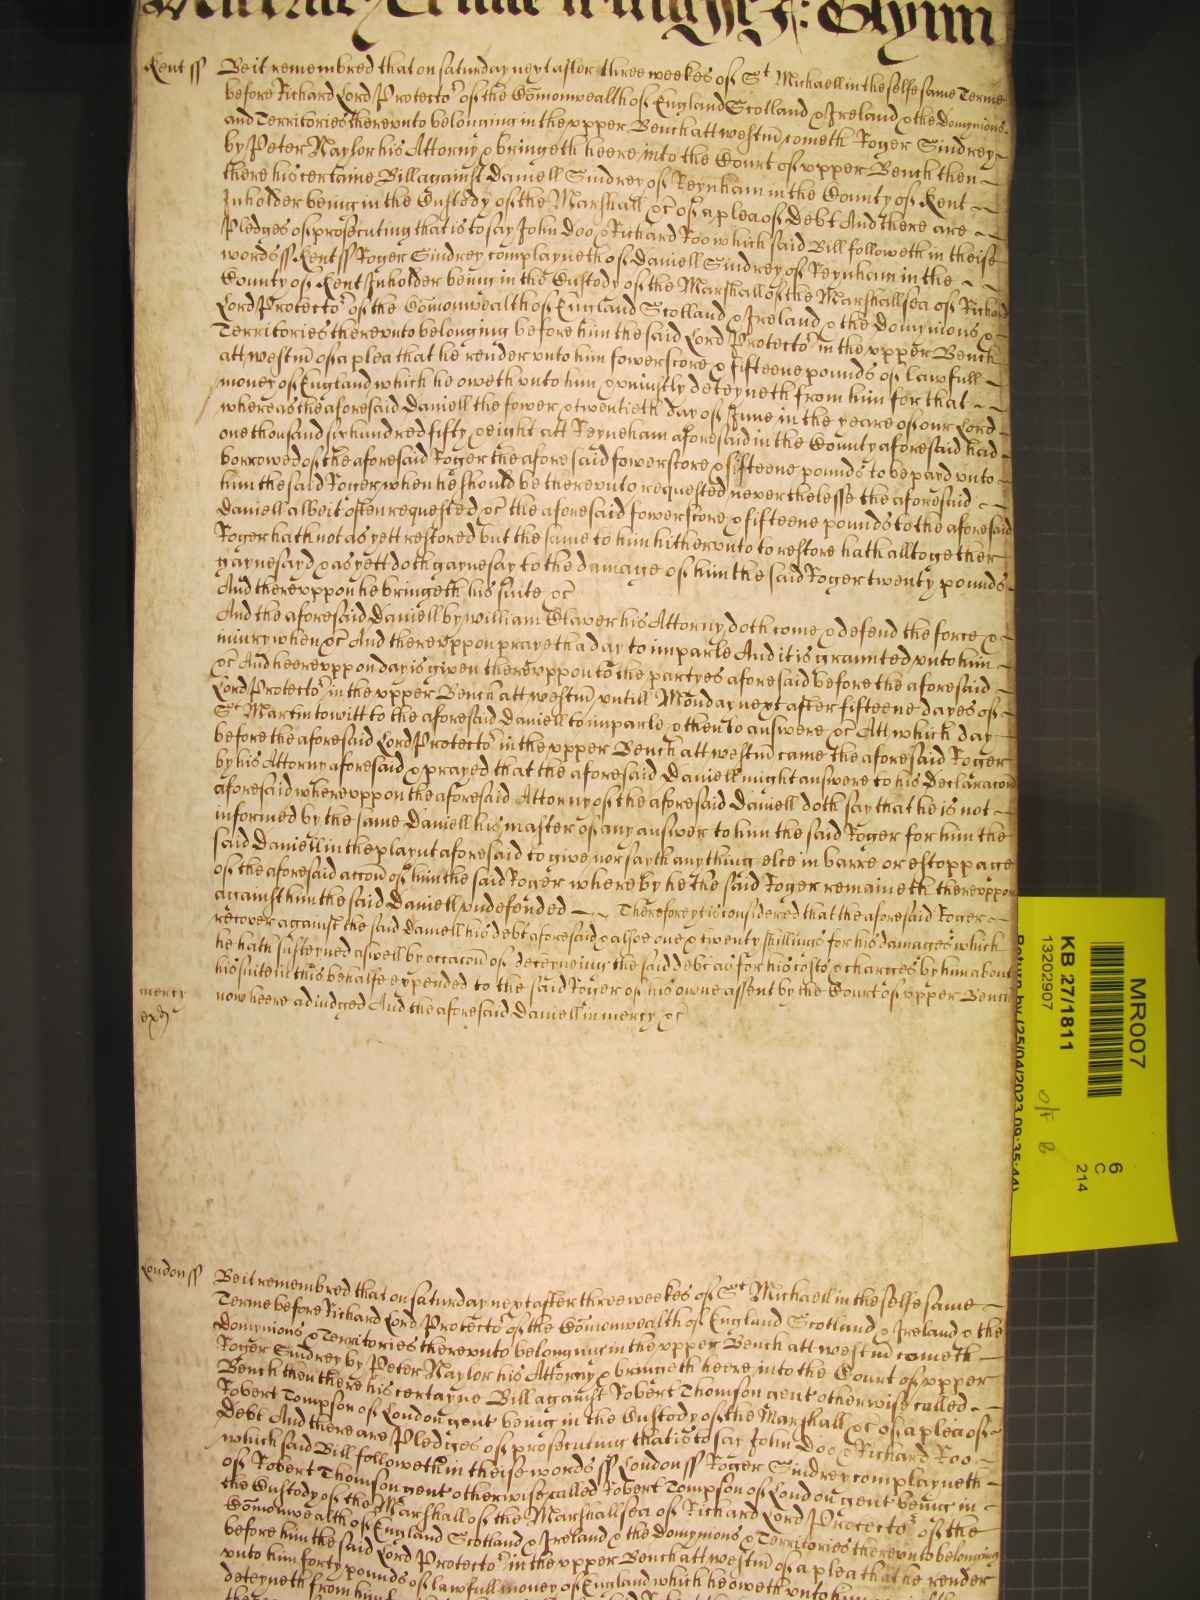 Glynn
Kent ss Be it remembred that on Saturday next after three weekes of St Michaell in the selfe same Terme
before Richard Lord Protector of the Com̄onwealth of England Scotland & Ireland & the Dominions
and Territories therevnto belonging in the vpper Bench att westm̄ cometh Roger Sindrey
by Peter Naylor his Attorny & bringeth heere into the Court of vpper Bench then
there his certaine Bill against Daniell Sindrey of Reynham in the County of Kent
Inholder being in the Custody of the Marshall &c of a plea of Debt And there are
Pledges of prosecuting that is to say John Doo & Richard Roo which said Bill followeth in theise
words ss Kent ss Roger Sindrey complayneth of Daniell Sindrey of Reynham in the
County of Kent Inholder being in the Custody of the Marshall of the Marshallsea of Richard
Lord Protector of the Com̄onwealth of England Scotland & Ireland & the Dominions &
Territories therevnto belonging before him the said Lord Protector in the vpper Bench
att westm̄ of a plea that he render vnto him fowerscore & fifteene pounds of lawfull
money of England which he oweth vnto him & vniustly deteyneth from him for that
whereas the aforesaid Daniell the fower & twentieth day of June in the yeare of our Lord
one thousand six hundred fifty & eight att Reyneham aforesaid in the County aforesaid had
borrowed of the aforesaid Roger the aforesaid fowerscore & fifteene pounds to be payd vnto
him the said Roger when he should be therevnto requested neverthelesse the aforesaid
Daniell albeit often requested &c the aforesaid fowerscore & fifteene pounds to the aforesaid
Roger hath not as yett restored but the same to him hithervnto to restore hath alltogether
gaynesayd & as yett doth gaynesay to the damage of him the said Roger twenty pounds
And therevppon he bringeth his suite &c
And the aforesaid Daniell by william Claver his Attorny doth come & defend the force &
iniury when &c And therevppon prayeth a day to imparle And it is graunted vnto him
&c And heerevppon day is given therevppon to the partyes aforesaid before the aforesaid
Lord Protector in the vpper Bench att westm̄ vntill Monday next after fifteene dayes of
St Martin to witt to the aforesaid Daniell to imparle & then to answere &c Att which day
before the aforesaid Lord Protector in the vpper Bench att westm̄ came the aforesaid Roger
by his Attorny aforesaid & prayed that the aforesaid Daniell might answere to his Declaracon
aforesaid wherevppon the aforesaid Attorny of the aforesaid Daniell doth say that he is not
informed by the same Daniell his master of any answer to him the said Roger for him the
said Daniell in the playnt aforesaid to give nor sayth any thing else in barre or estoppage
of the aforesaid accon̄ of him the said Roger whereby he the said Roger remaineth therevppon
against him the said Daniell vndefended Therefore yt is considered that the aforesaid Roger
recover against the said Daniell his debt aforesaid & alsoe one & twenty shillings for his damages which
he hath susteyned aswell by occacon̄ of deteyneing the said debt as for his costs & charges by him about
his suite in this behalfe expended to the said Roger of his owne assent by the Court of vpper Bench
mercy now heere adiudged And the aforesaid Daniell in mercy &c
London ss Be it remembred that on Saturday next after three weekes of St Michaell in the selfe same
Terme before Richard Lord Protector of the Com̄onwealth of England Scotland & Ireland & the
Dominions & Territories therevnto belonging in the vpper Bench att westm̄ cometh
Roger Sindrey by Peter Naylor his Attorny & bringeth heere into the Court of vpper
Bench then there his certayne Bill against Robert Thomson gent otherwise called
Robert Tompson of London gent being in the Custody of the Marshall &c of a plea of
Debt And there are Pledges of prosecuting that is to say John Doo & Richard Roo
which said Bill followeth in theise words ss London ss Roger Sindrey complayneth
of Robert Thomson gent otherwise called Robert Tompson of London gent being in
the Custody of the Marshall of the Marshallsea of Richard Lord Protector of the
Com̄onwealth of England Scotland & Ireland & the Dominions & Territories therevnto belonging
before him the said Lord Protector in the vpper Bench att westm̄ of a plea that he render
vnto him forty pounds of lawfull money of England which he oweth vnto him
deteyneth from him
MR007
KB 27/1811
13202907
Return by (25/04/2023 09:35:44)
6
C
214